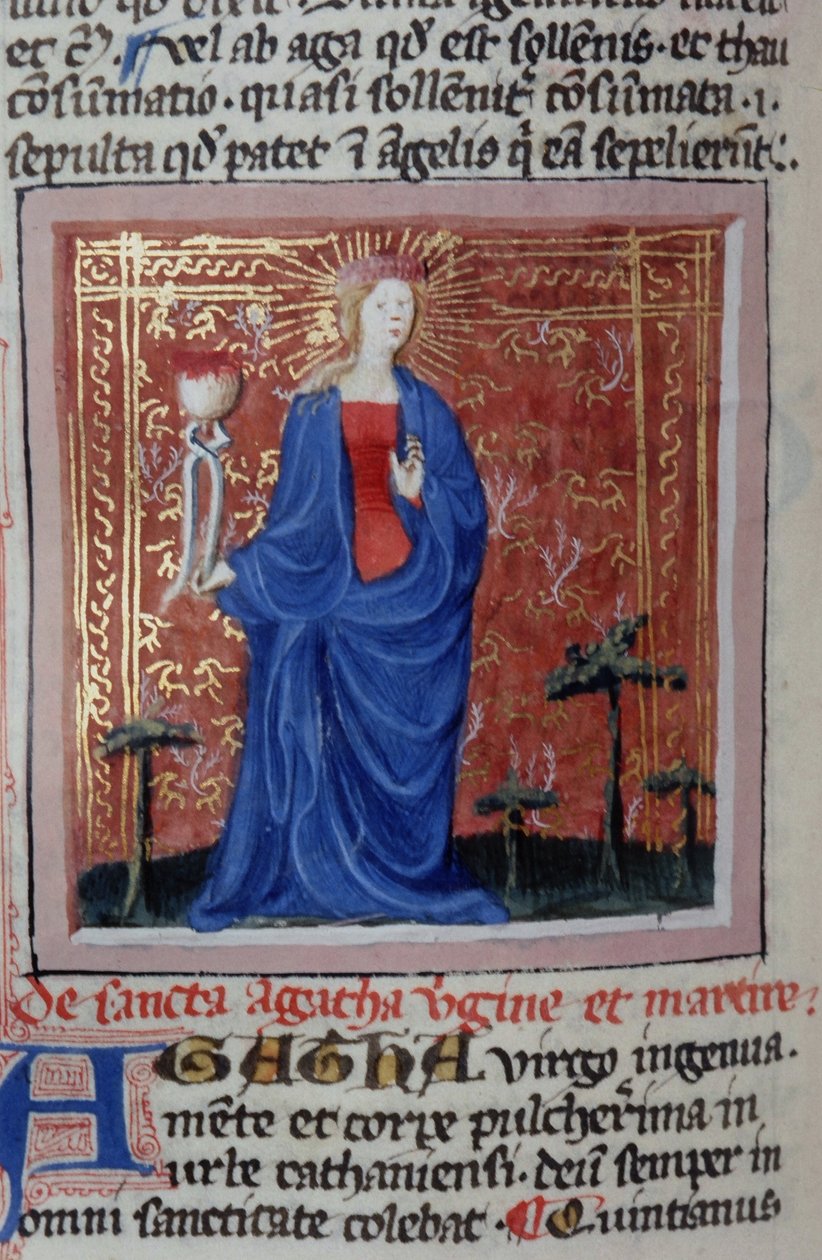 et c̄. Vel ab aga qd̄ est sollēnis. et thau
cōsūmatio. quasi sollēnit᷑ cōsūmata. i.
sepulta qd̄ patet ī āgelis q̄ eā sepelierūt.
De sancta agatha v̄gine et martire.
AGATHA virgo ingenua.
mēte et corꝑe pulcher̄ima in
urbe cathaniensi. deū semper in
omni sanctitate colebat. Quintianus